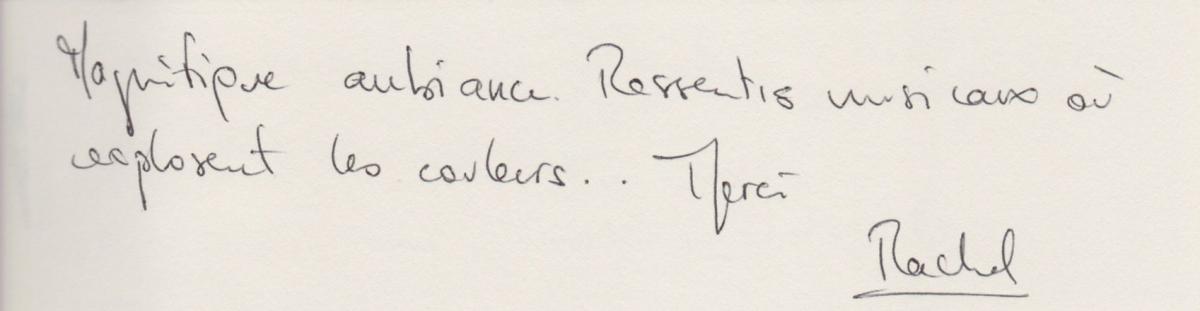 Magnifique ambiance. Ressentis musicaux où
explosent les couleurs... Merci
Rachel